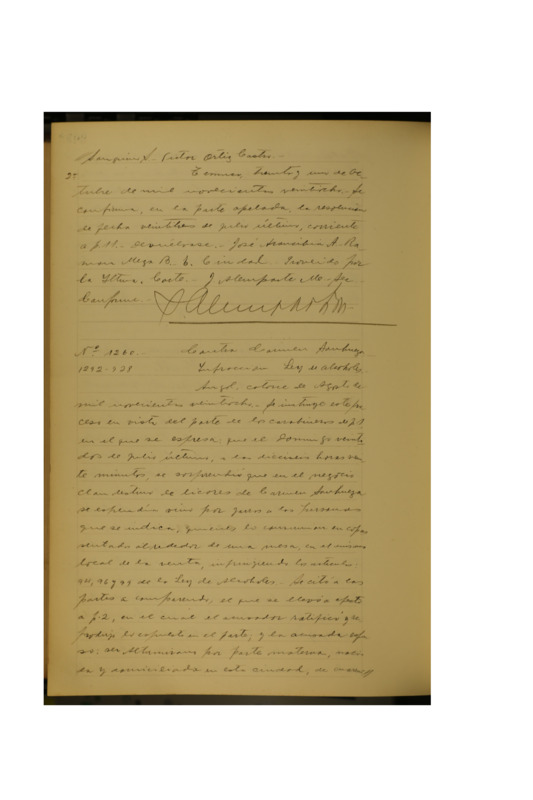 Sanguino S. Victor Ortiz Castro.-
2ª Temuco, treinta y uno de Oc
tubre de mil novecientos veintiocho.- Se
confirma, en la parte apelada, la resolucion
de fecha veintitres de julio último, corriente
a f. 11. Devuélvase.- José Ra
mon Meza R. E. Proveido por
la Iltma. Corte.- J. Alemparte M.- Sec.
Conforme.-
Nº 1240.- Contra Carmen
1292.328 Infraccion Ley de alcoholes
Angol, catorce de Agosto de
mil novecientos veintiocho.- Se instruye este pro
ceso en vista del parte de los carabineros de f. 1
en el que se espresa: que el Domingo veinti
dos de julio último, a las horas vein
te minutos, se sorprendió que en el negocio
clandestino de licores de Carmen
se espendia vino por jarros a las personas
que se indica, quienes lo consumian en copas
sentados alrededor de una mesa, en el mismo
local de la venta, infrinjiendo los articulos
de la Ley de Alcoholes.- Se citó a las
partes a comparendo, el que se llevó a efecto
a f. 2, en el cual el acusador ratificó y re
produjo lo espuesto en el parte, y la acusada espu
so: ser por parte materna, naci
da y domiciliada en esta ciudad, de